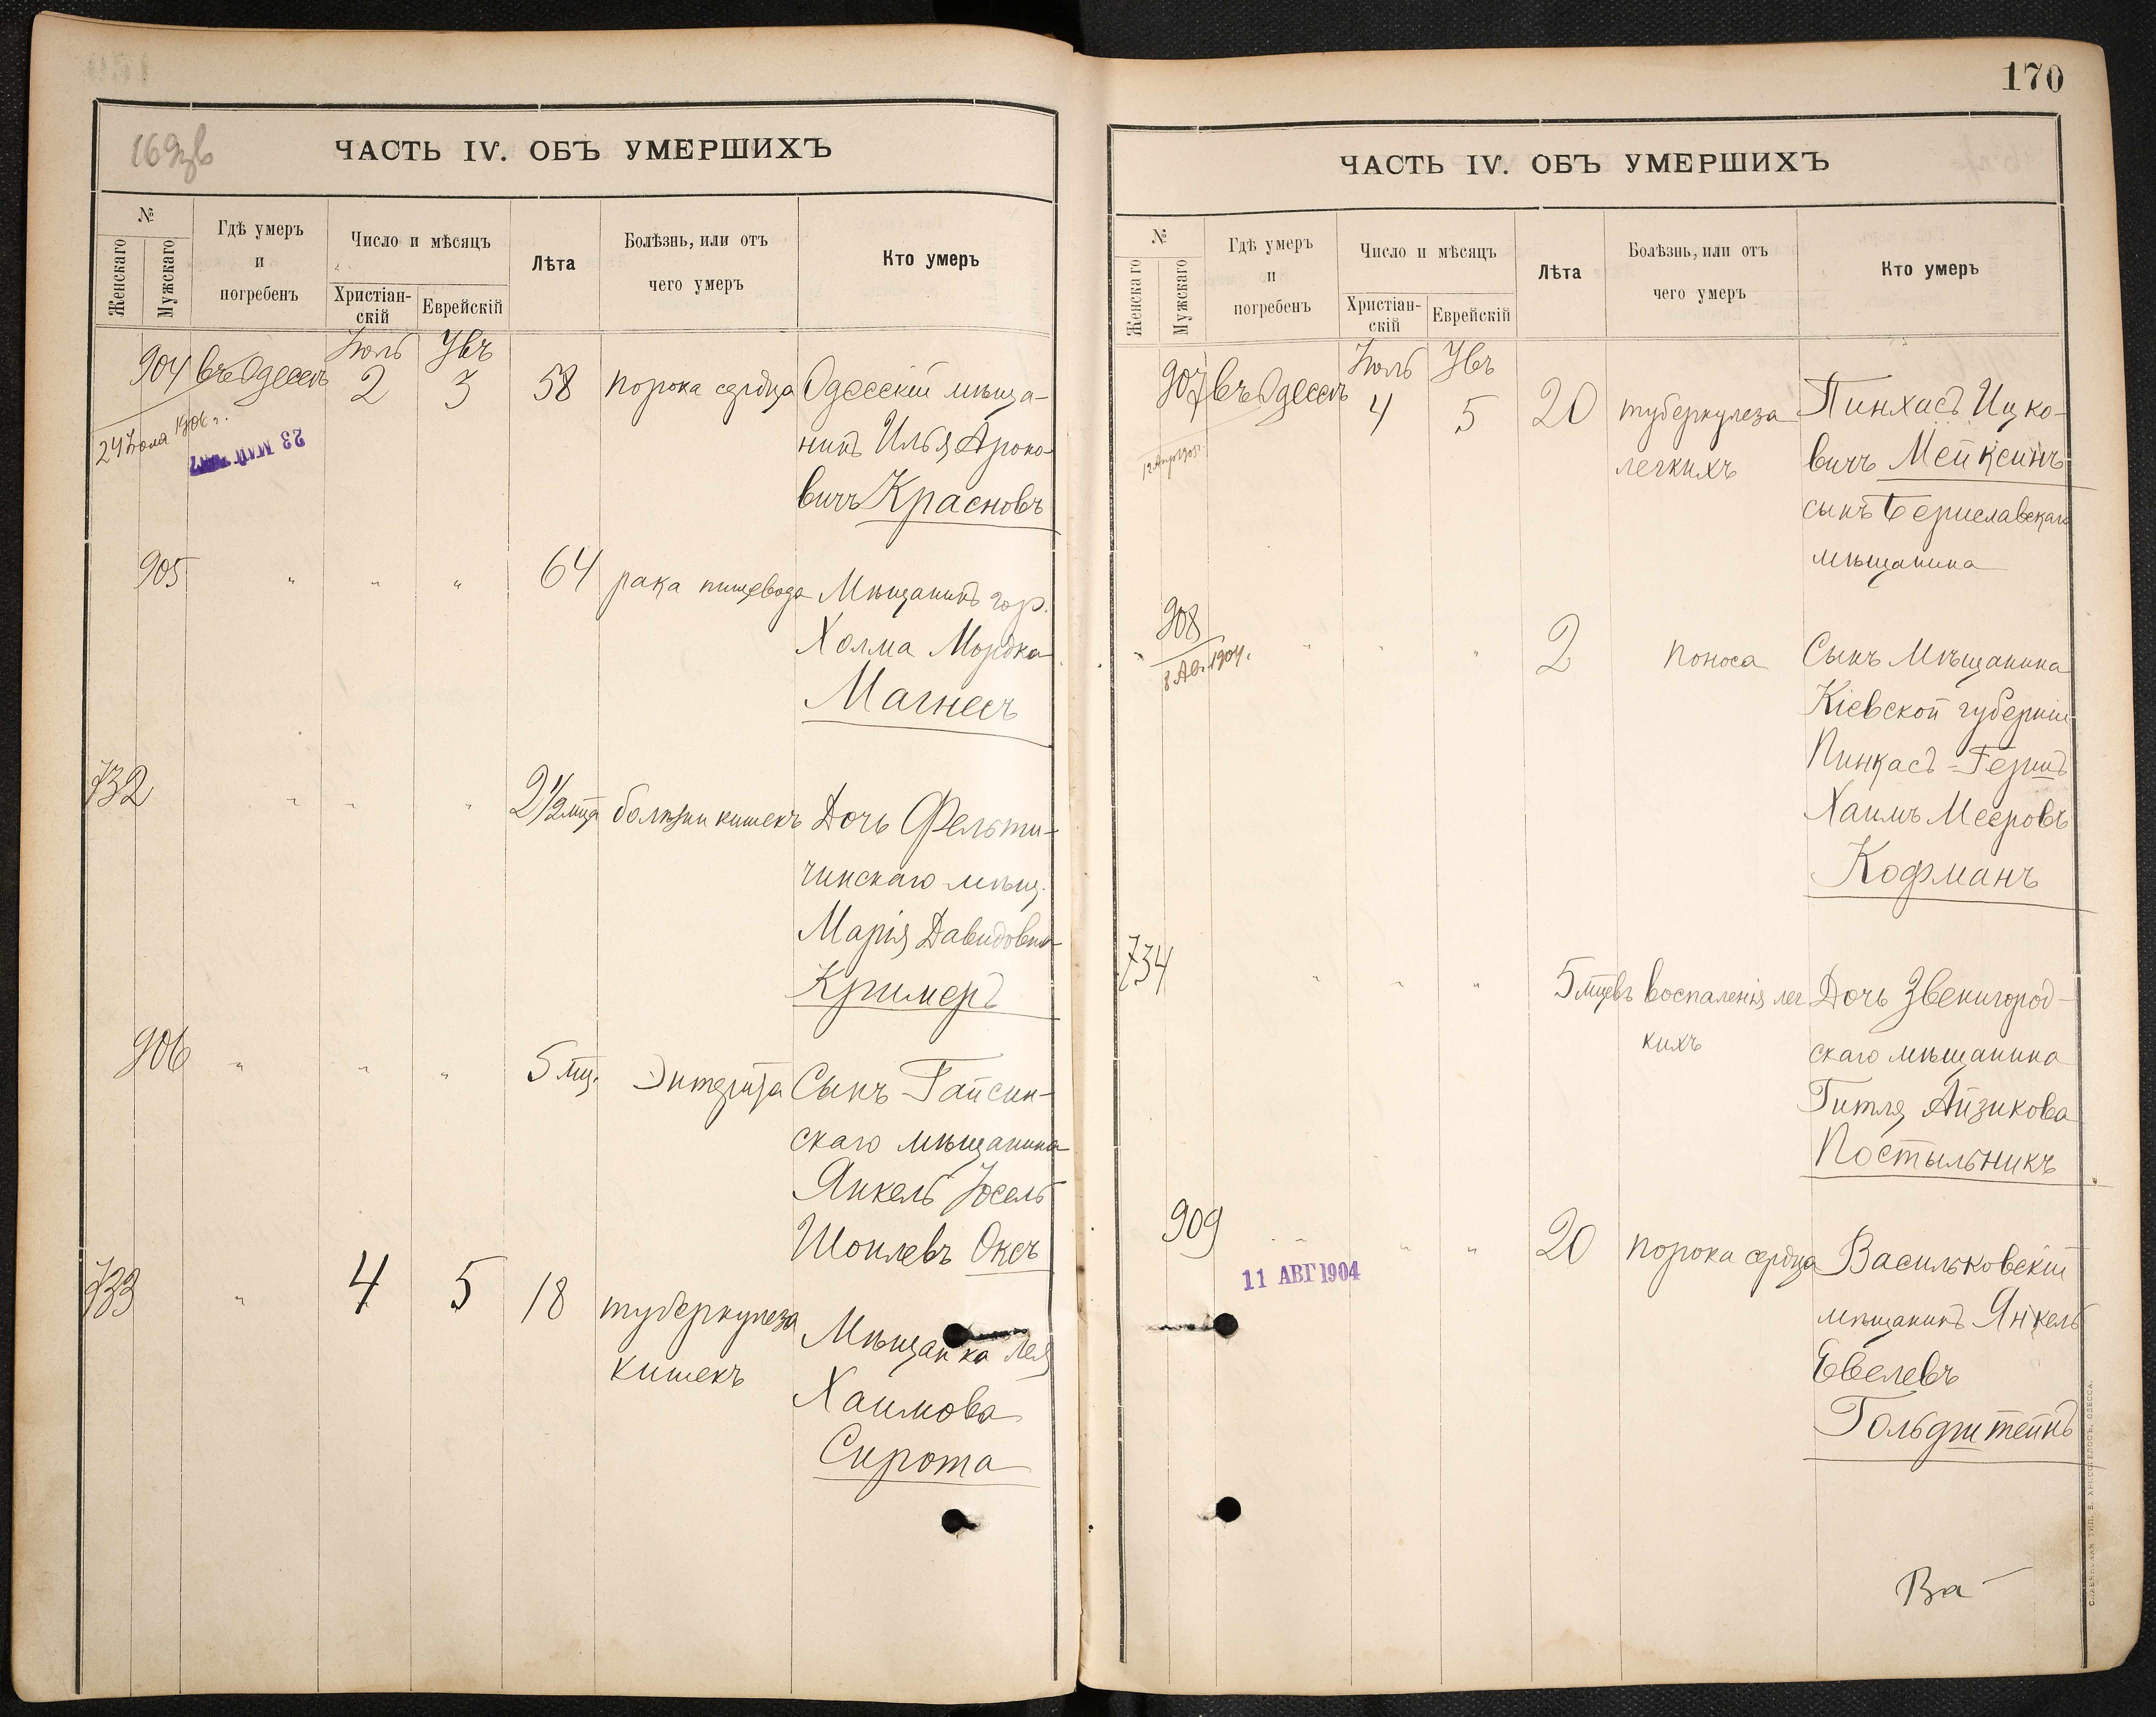 169зв
ЧАСТЬ IV. ОБЪ УМЕРШИХЪ
№
Женскаго
Мужскаго
Гдѣ умеръ
и
погребенъ
Число и мѣсяцъ
Христіан-
скій
Еврейскій
Лѣта
Болѣзнь, или отъ
чего умеръ
Кто умеръ
904 въ Одессѣ Іюль 2 Увъ 3 58 порока сердца Одесскій мѣща-
24 Іюля 1906 г.
23
нинъ Илья Ароно-
вичъ Красновъ
905 " " " 64 рака пищевода Мѣщанинъ гор.
Холма Мордка
Магнесъ
732 " " " 2 1/2 мца болѣзни кишекъ Дочь Фельти-
чинскаго мѣщ.
Марія Давидовна
Кримеръ
906 " " " 5 мц. Энтерита Сынъ Гайсин-
скаго мѣщанина
Янкель Іосель
Шоилевъ Оксъ
733 " 4 5 18 туберкулеза
кишекъ
Мѣщанка Лея
Хаимова
Сирота
170
ЧАСТЬ IV. ОБЪ УМЕРШИХЪ
№
Женскаго
Мужскаго
Гдѣ умеръ
и
погребенъ
Число и мѣсяцъ
Христіан-
скій
Еврейскій
Лѣта
Болѣзнь, или отъ
чего умеръ
Кто умеръ
907 въ Одессѣ Іюль 4 Увъ 5 20 туберкулеза Пинхасъ Ицко-
легкихъ вичъ Мейксинъ
сынъ Бериславскаго
мѣщанина
908 " " " 2 поноса Сынъ Мѣщанина
8 Ав. 1904.
Кіевской губерніи
Пинкасъ-Гершъ
Хаимъ Мееровъ
Кофманъ
734 " " " 5 мцевъ воспаленія лег Дочь Звенигород-
кихъ скаго мѣщанина
Гитля Айзикова
Постыльникъ
909 " " " 20 порока сердца Васильковскій
11 АВГ 1904
мѣщанинъ Янкель
Евелевъ
Гольдштейнъ
Ва-
СЛАВЯНСКАЯ ТИП. Е. ХРИСОГЕЛОСЪ, ОДЕССА.